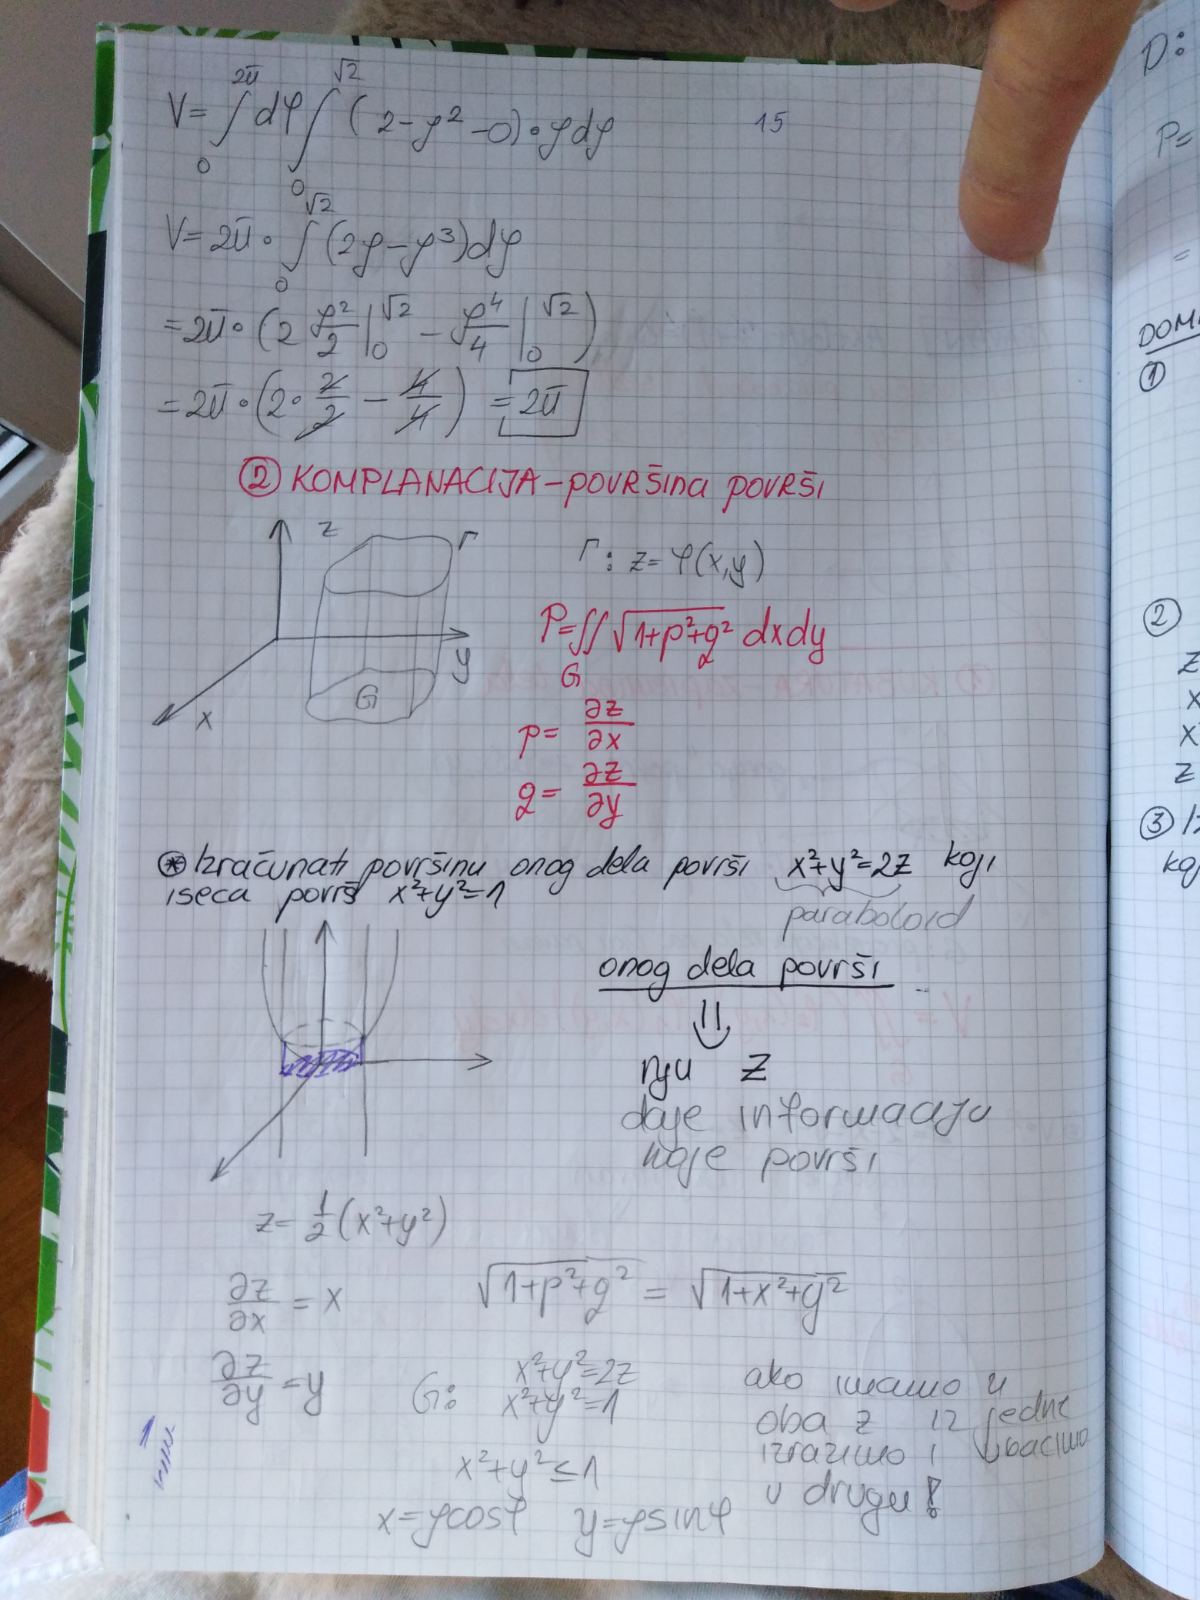 15
V = ∫₀^{2π} dφ ∫₀^{√2} (2-ρ²-0)·ρdρ
V = 2π· ∫₀^{√2} (2ρ-ρ³)dρ
= 2π·(2 ρ²/2 |₀^{√2} - ρ⁴/4 |₀^{√2})
= 2π·(2· 2/2 - 4/4) = 2π
② KOMPLANACIJA - površina površi
z Γ
y
x
G
Γ: z = φ(x,y)
P = ∬ √(1+p²+q²) dxdy
G
p = ∂z/∂x
q = ∂z/∂y
⊛ Izračunati površinu onog dela površi x²+y²=2z koji
iseca površ x²+y²=1
paraboloid
onog dela površi
⇓
nju z
daje informaciju
koje površi
z = 1/2 (x²+y²)
∂z/∂x = x √(1+p²+q²) = √(1+x²+y²)
∂z/∂y = y
G: x²+y²=2z
x²+y²=1
x²+y² ≤ 1
x=ρcosφ y=ρsinφ
ako imamo u
oba z iz jedne
izrazimo i ubacimo
u drugu!
D:
P=
=
DOM
①
②
z
x
x
z
③ Iz
koj